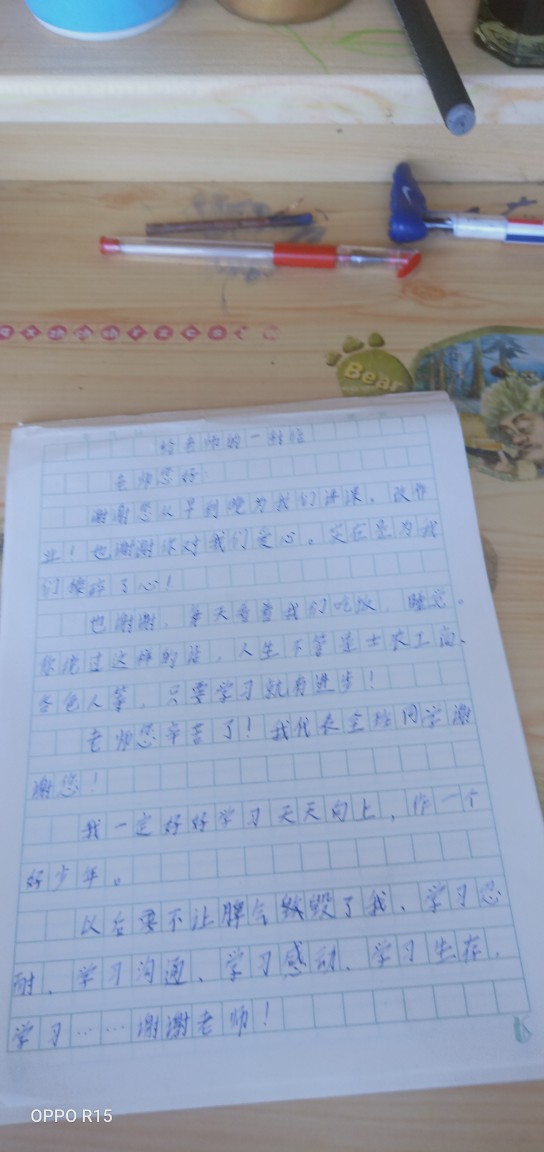 Bear
给老师的一封信
老师您好:
谢谢您从早到晚为我们讲课,改作
业!也谢谢你对我们爱心。实在是为我
们操碎了心!
也谢谢,每天看着我们吃饭,睡觉。
你说过这样的话,人生不管是士农工商、
各色人等,只要学习就有进步!
老师您辛苦了!我代表全班同学谢
谢您!
我一定好好学习天天向上,作一个
好少年。
以后要不让脾气毁了我、学习忍
耐、学习沟通、学习感动、学习生存、
学习……谢谢老师!
OPPO R15